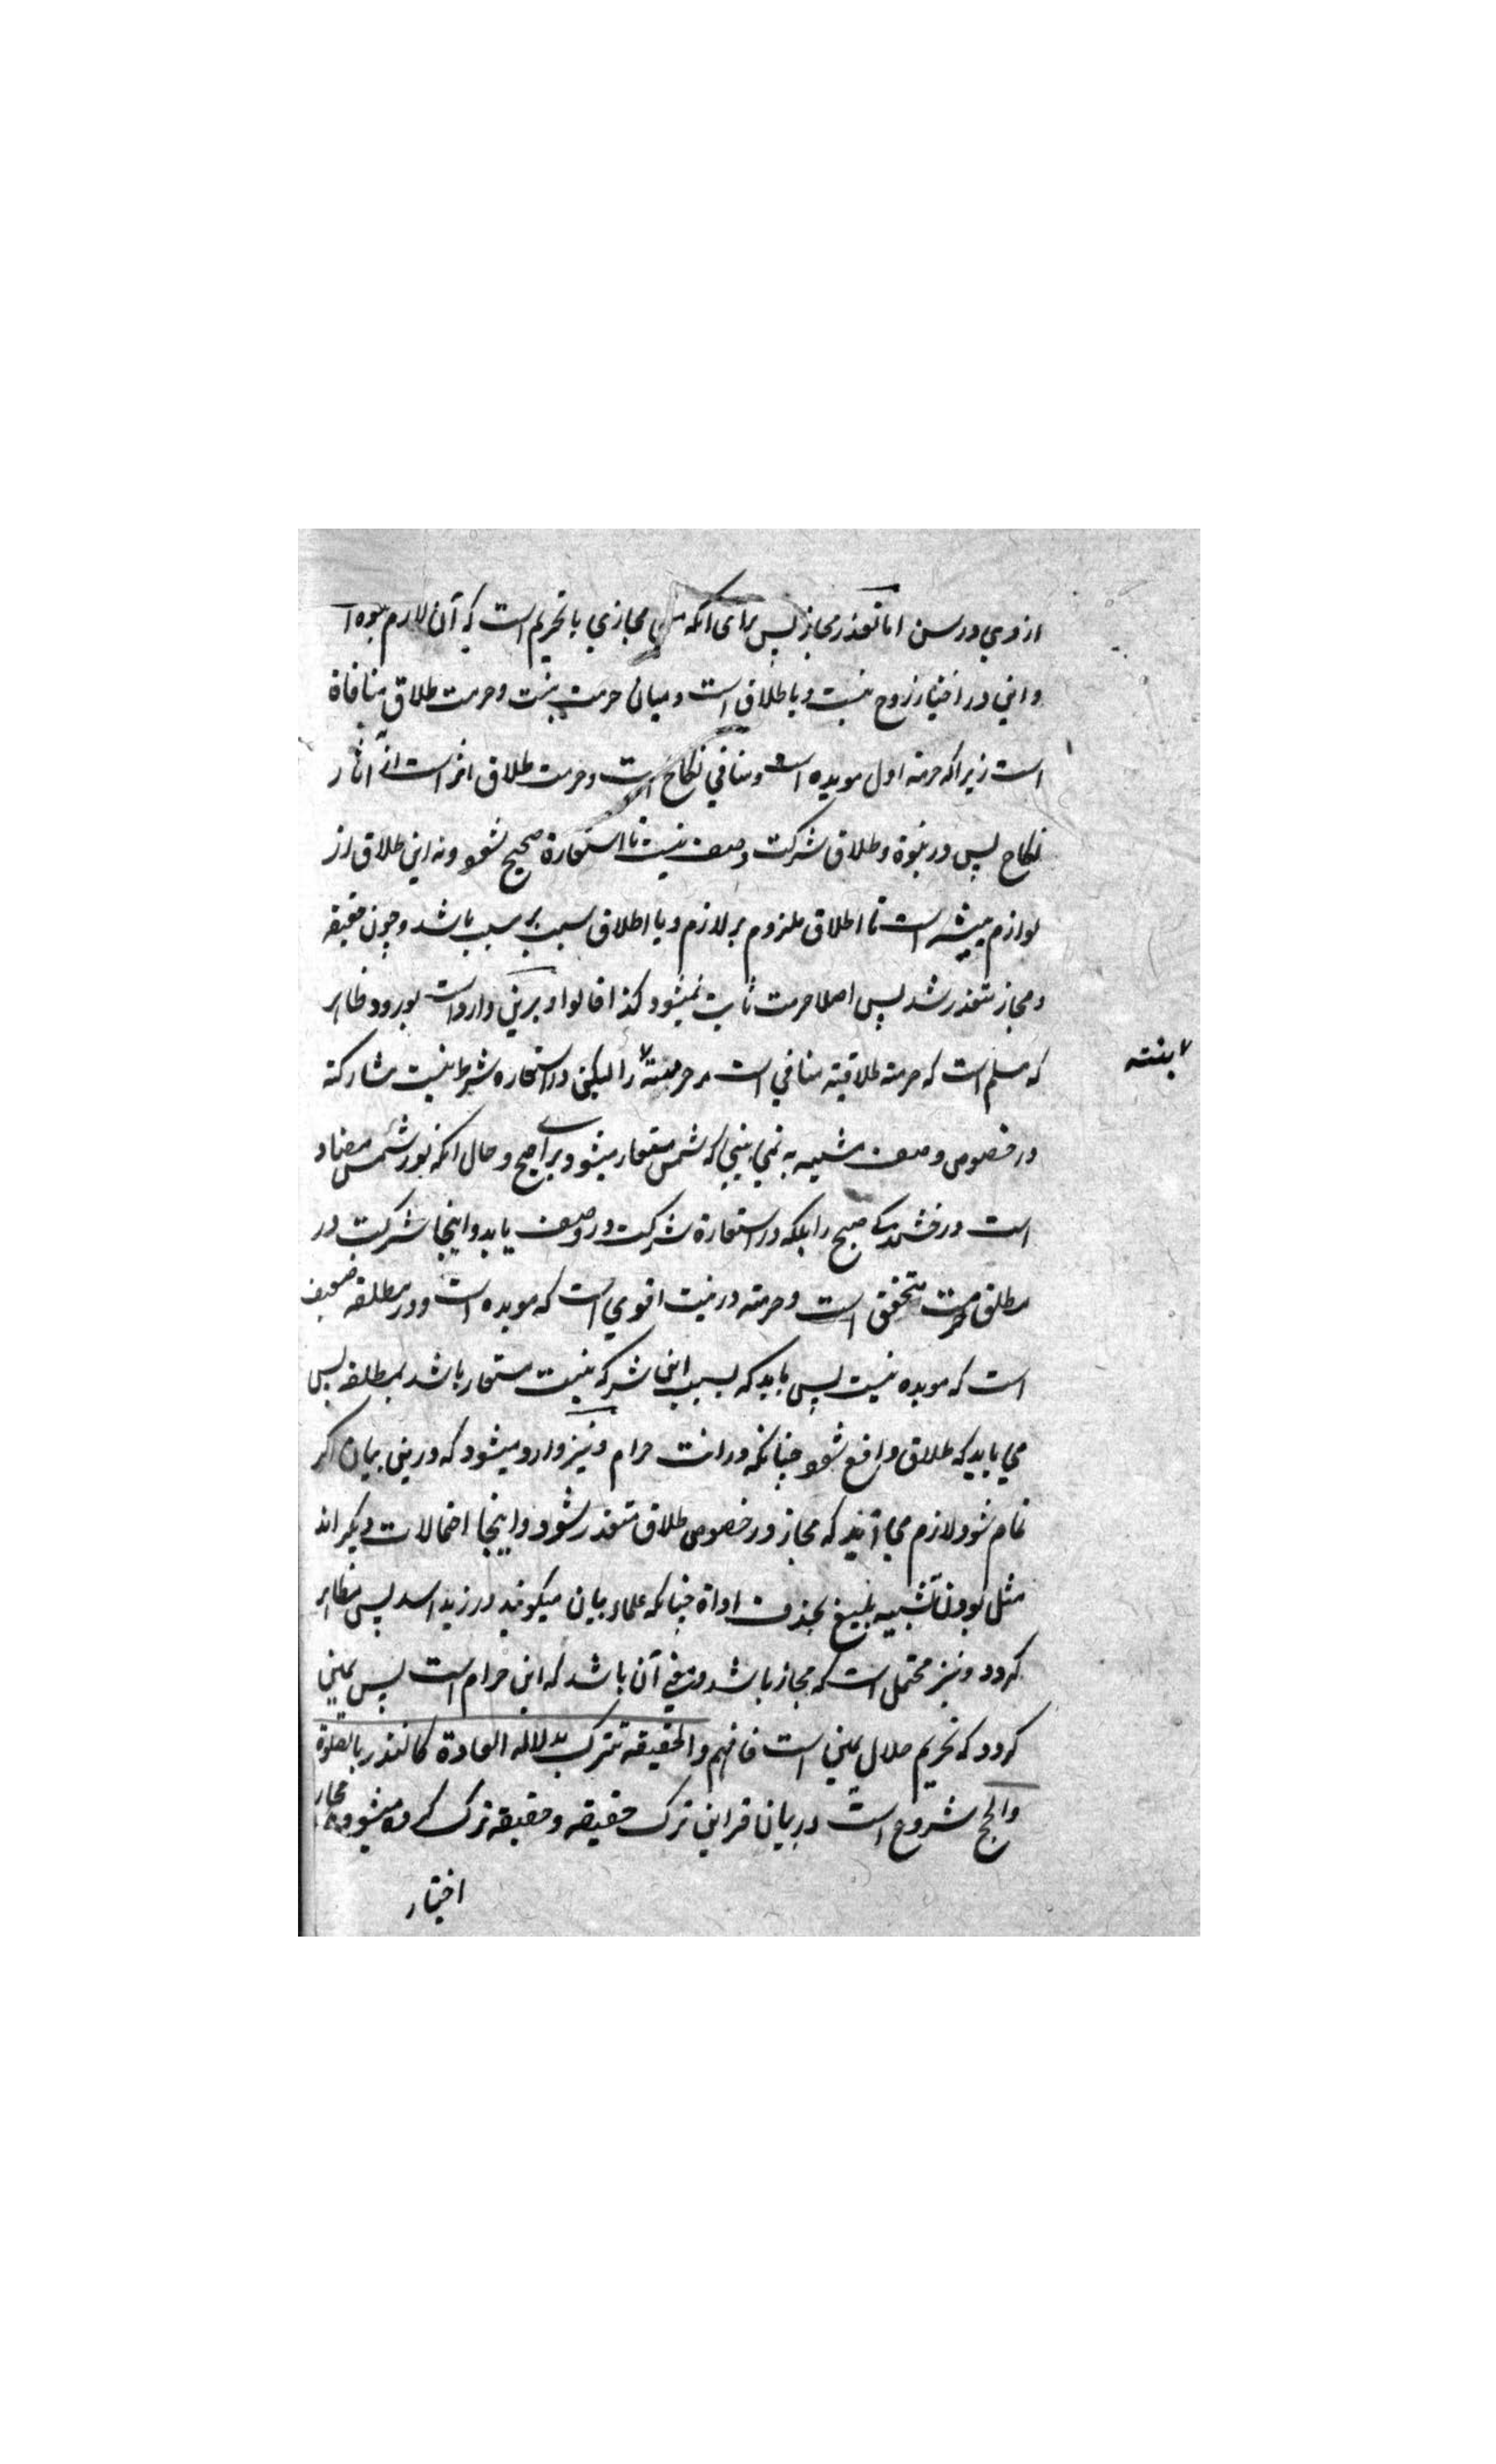 از وي در سن اما تعذر مجاز پس براى انكه مجازي يا تحريم است كه آن لازم بنوة
و اين در اختيار زوج نيست و يا طلاق است و ميان حرمت بنت و حرمت طلاق منافاة
است زيراكه حرمة اول موبده است و منافي نكاح است و حرمت طلاق اثر است از آثار
نكاح پس در بنوة و طلاق شركت وصف نيست تا استعارة صحيح شود و نه اين طلاق از
لوازم است تا اطلاق ملزوم بر لازم و يا اطلاق سبب بر سبب باشد و چون حقيقه
و مجاز متعذر شد پس اصلا حرمت ثابت نميشود كذا قالوا و برين وارد است بورود ظاهر
كه مسلم است كه حرمة طلاقيته منافي است مر حرمة را ليكن در استعاره شرط نيست مشاركة
ابنته
در خصوص وصف مشبه به نمي بيني كه شمس مستعار ميشود براى صبح و حال انكه نور شمس مضاد
است درخشندكى صبح را بلكه در استعارة شركت در وصف بايد و اينجا شركت در
مطلق حرمت متحقق است و حرمة در بنت اقوي است كه موبده است و در مطلقه ضعيف
است كه موبده نيست پس بايد كه بسبب اين شركة بنت مستعار باشد بمطلقه پس
مي بايد كه طلاق واقع شود چنانكه در انت حرام و نيز وارد ميشود كه درين بيان اكر
تمام شود لازم مي آيد كه مجاز در خصوص طلاق متعذر شود و اينجا احتمالات ديكر اند
مثل بودن تشبيه بليغ بحذف اداة چنانكه علماء بيان ميكويند در زيد اسد پس مظاهر
كردد و نيز محتمل است كه مجاز باشد و معني آن باشد كه اين حرام است پس يمين
كردد كه تحريم حلال يمين است فافهم والحقيقة تترك بدلالة العادة كالنذر بالصلوة
والحج شروع است در بيان قراين ترك حقيقه و حقيقه ترك كرده ميشود و مجاز
اختيار